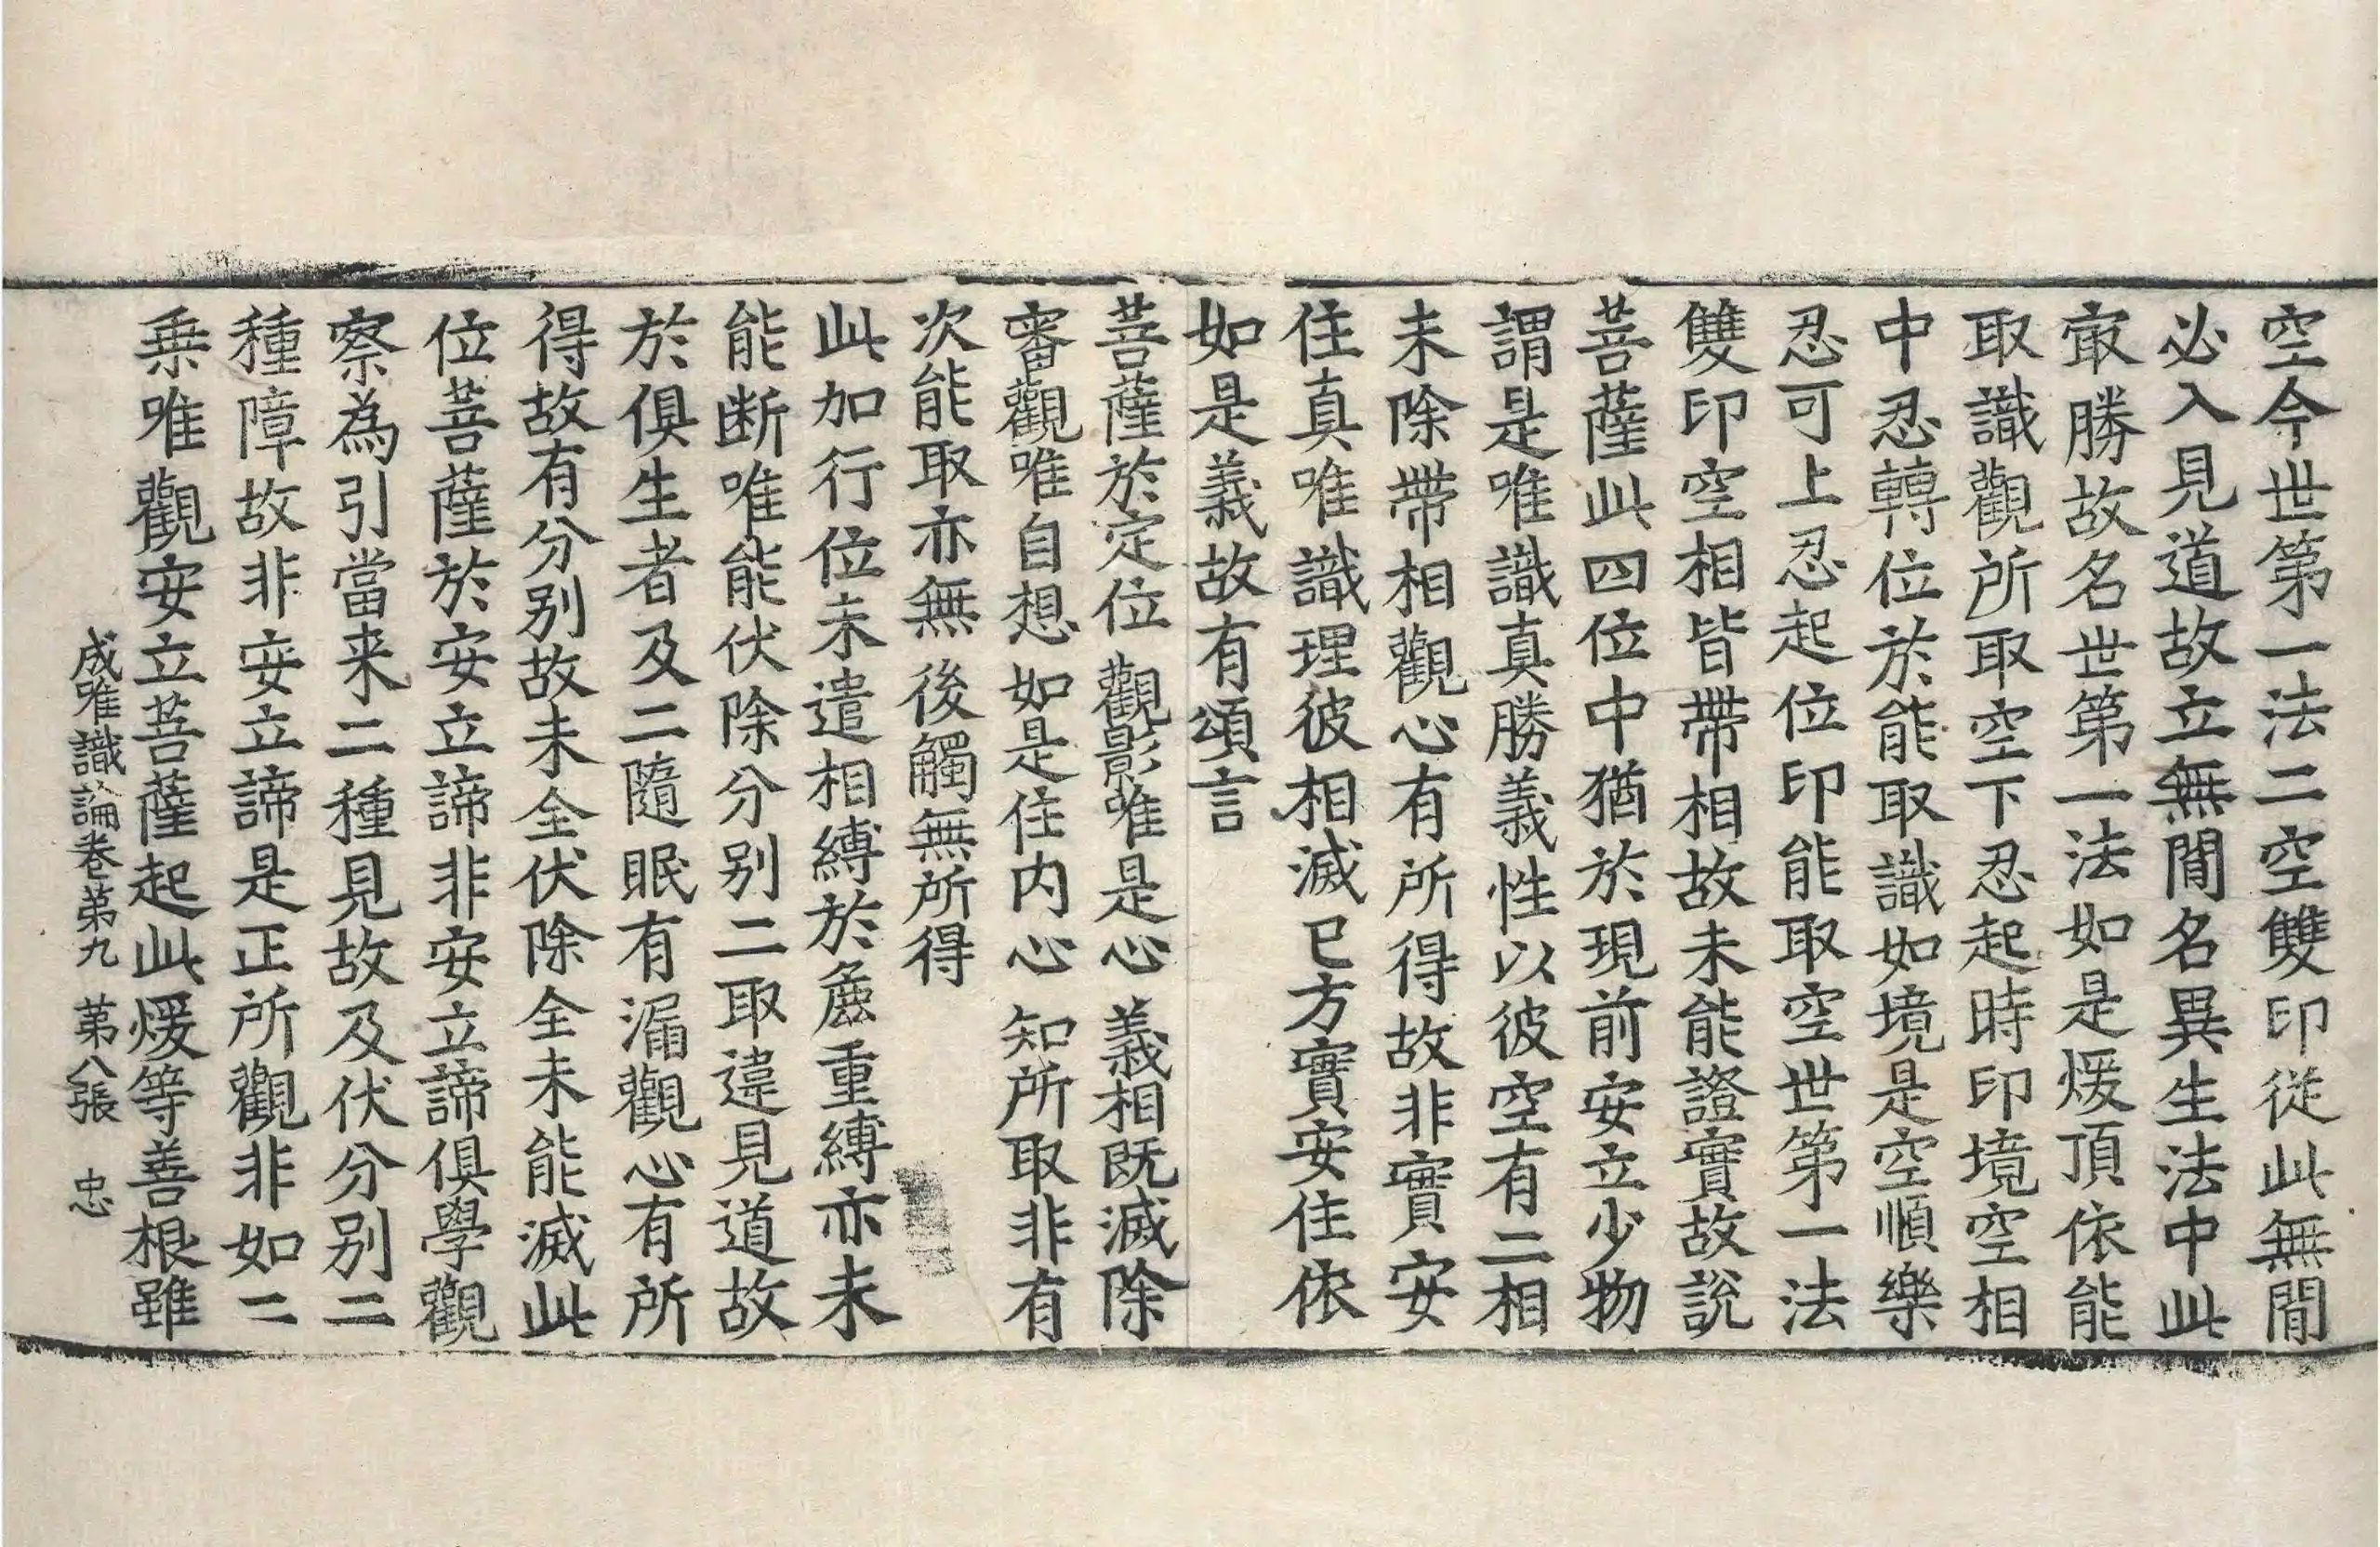 空今世第一法二空雙印從此無間
必入見道故立無間名異生法中此
㝡勝故名世第一法如是煖頂依能
取識觀所取空下忍起時印境空相
中忍轉位於能取識如境是空順樂
忍可上忍起位印能取空世第一法
雙印空相皆帶相故未能證實故說
菩薩此四位中猶於現前安立少物
謂是唯識真勝義性以彼空有二相
未除帶相觀心有所得故非實安
住真唯識理彼相滅已方實安住依
如是義故有頌言
菩薩於定位 觀影唯是心 義相既滅除
審觀唯自想 如是住内心 知所取非有
次能取亦無 後觸無所得
此加行位未遣相縛於麁重縛亦未
能断唯能伏除分别二取違見道故
於俱生者及二隨眠有漏觀心有所
得故有分别故未全伏除全未能滅此
位菩薩於安立諦非安立諦俱學觀
察為引當来二種見故及伏分别二
種障故非安立諦是正所觀非如二
乗唯觀安立菩薩起此煖等善根雖
成唯識論卷苐九 苐八張 忠